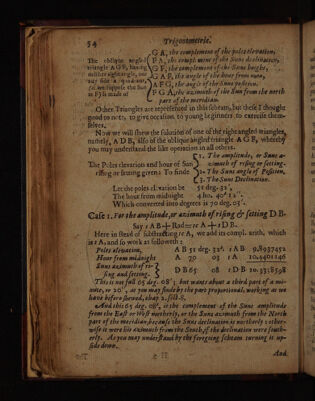 54 Trigonometrie.
G A, the complement of the poles elevation,
The oblique angled P A, the complement of the Suns declination,
triangle A G P, having G P, the complement of the Suns height,
neither right angle, nor G A P, the angle of the hour from noon,
any side a quadrant, A P G, the angle of the Suns position.
P G A, the azimuth of the Sun from the north
part of the meridian.
Other Triangles are represented in this scheam, but these I thought
good to note, to give occasion to young beginners to exercise them-
selves.
Now we will shew the solution of one of the right angled triangles,
namely, A D B, also of the oblique angled triangle A G P, whereby
you may understand the like operation in all others.
1. The amplitude, or Suns a-
The Poles elevation and hour of Sun zimuth of rising or setting.
rising or setting given: To finde 2. The Suns angle of Position,
3. The Suns Declination.
Let the poles elevation be 51 deg. 32'.
The hour from midnight 4 ho. 40' 12''.
Which converted into degrees is 70 deg. 03'.
Case 1. For the amplitude, or azimuth of rising & setting D B.
Say
Here in stead of subtracting A, we add its compl. arith. which
is A, and so work as followeth:
Poles elevation, A B 51 deg. 32'. A B 9.8937452
Hour from midnight A 70 03 A 10.4401146
Suns azimuth of ri-
sing and setting. D B 65 08 D B 10.3338598
This is not full 65 deg. 08'; but wants about a third part of a mi-
nute, or 20'', as you may finde by the part proportional, working as we
have before shewed,
And this 65 deg. 08', is the complement of the Suns amplitude
from the East or West northerly, or the Suns azimuth from the North
part of the meridian, because the Suns declination is northerly: other-
wise it were his azimuth from the South, if the declination were south-
erly. As you may understand by the foregoing scheam turning it up-
side down.
And